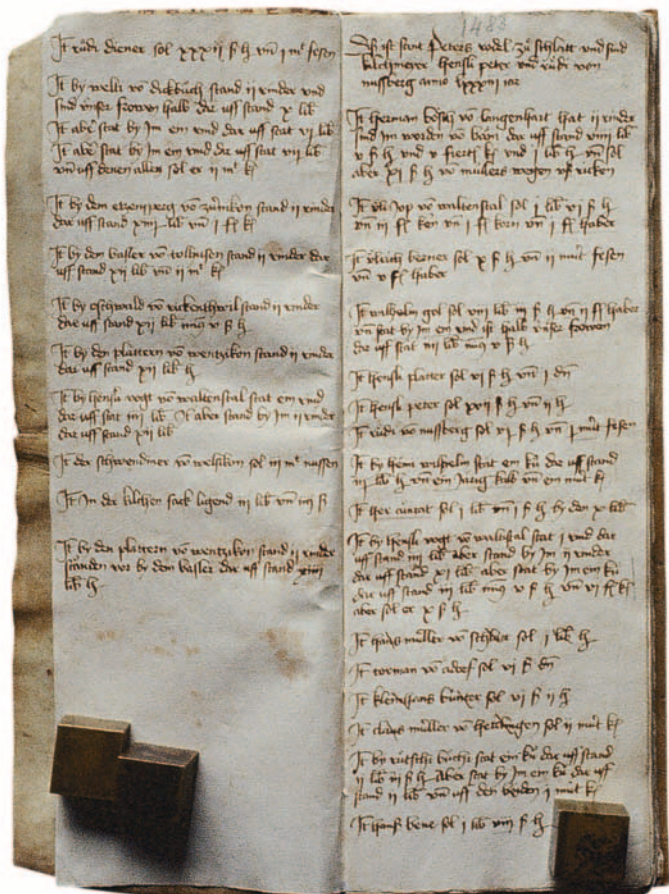 It rúdi diener sol xxxii ß h vn̄ i mt fesen
It by welti vō dickbuch stand ii rinder vnd
sind vnser frowen halb dar uff stand x lib
It aber stat by Im ein rind dar uff stat vi lib
It aber stat by Im ein rind dar uff stat vii lib
vn̄ uff denen allen sol er ii mt k
It by dem etzensperg vō zúnikon stand ii rinder
dar uff stand xiii lib vn̄ i k
It by den basler vō tolhusen stand ii rinder dar
uff stand xii lib vn̄ ii mt k
It by oschwald vō rickenthwil stand ii rinder
dar uff stand xii lib v ß h
It by den plattern vō wentzikon stand ii rinder
dar uff stand xii lib h
It by hensli vogt vō waltenstal stat ein rind
dar uff stat iii lib It aber stand by Im ii rinder
dar uff stand xii lib
It der schwendiner vō welsikon sol iii mt nussen
It In der kilchen sack ligend iii lib vn̄ iiij ß
It by den plattern vō wentzikon stand ii rinder
standen vor by dem basler dar uff stand xiiii
lib h
1483
Dis ist sant Peters rodel zů schlatt vnd sind
kilchmeyer hensli peter vn̄ rúdi von
nussberg anno lxxxiii iar
It herman bosch vō langenhart hat ii rinder
sind Im worden vō dar uff stand viiii lib
v ß h vnd v fiertl k vnd i lib h vn̄ sol
aber xi ß h vō mullers wegen vō ricken
It vli vō waltenstal sol i lib vi ß h
vn̄ iii fl vn̄ i fl korn vn̄ i fl haber
It vlrich berner sol x ß h vn̄ ii mút fesen
vn̄ v haber
It wilhelm gol sol viii lib iii ß h vn̄ ii haber
vn̄ stat by Im ein rind ist halb vnser frowen
dar uff stat iii lib v ß h
It hensli platter sol vi ß h vn̄ i dn
It hensli peter sol xvii ß h vn̄ ii h
It rúdi vō nussberg sol vj ß h vn̄ j mút fesen
It by heini wilhelm stat ein kú dar uff stand
iii lib h vn̄ ein Járig kalb vn̄ ein mút k
It her cunrat sol i lib vn̄ i ß h by den x lib
It by hensli vogt vō waltistal stat i rind dar
uff stand iiij lib aber stand by Im ii rinder
dar uff stand xi lib aber stat by Im ein kú
dar uff stand iii lib v ß h vn̄ vi fl k
aber sol er x ß h
It hans muller vō schben sol i lib h
It torman vō adorf sol vi ß dn
It kleinhans búnger sol vj ß ii h
It claus muller vō hettlingen sol ii mút k
It by rútschi búchi stat ein kú dar uff stand
ii lib iii ß h Aber stat by Im ein kú dar uff
stand ii lib vn̄ uff den beiden i mút k
It hans bene sol i lib viii ß h